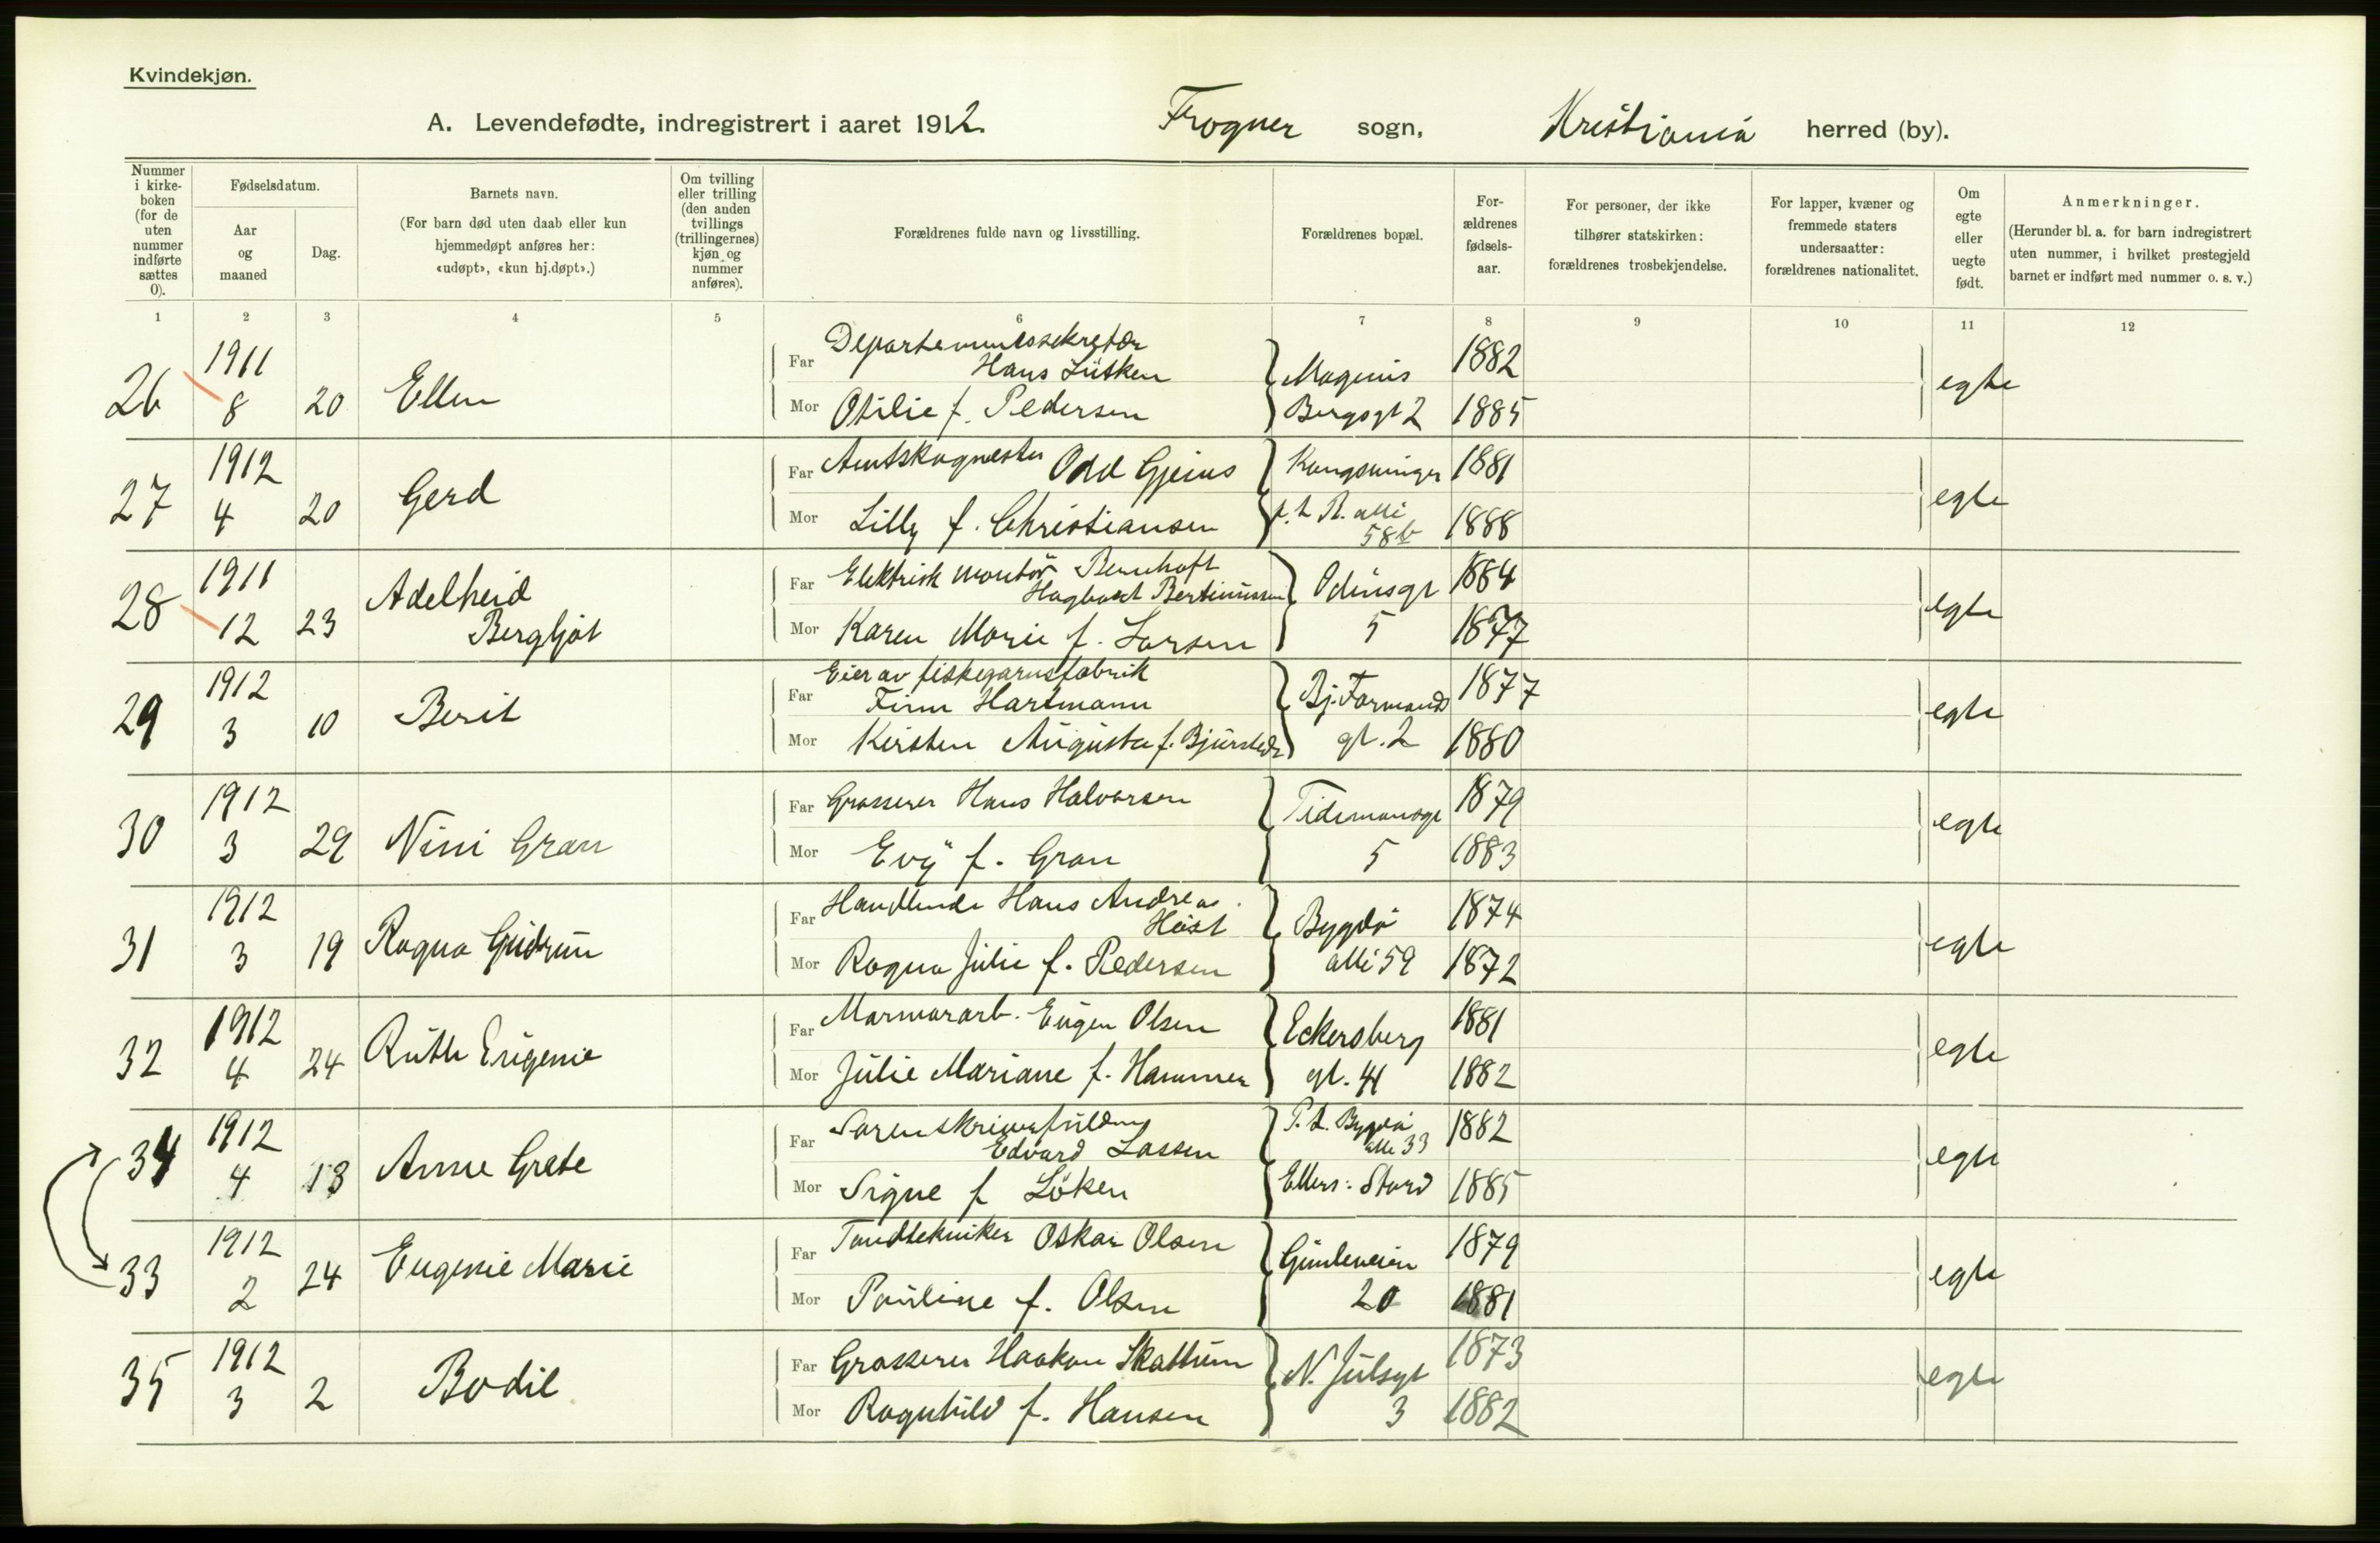 Kvindekjøn.
A. Levendefødte, indregistrert i aaret 1912. Frogner sogn, Kristiania herred (by).
Nummer i kirkeboken (for de uten nummer indførte sættes 0).
Fødselsdatum.
Aar og maaned
Dag.
Barnets navn.
(For barn død uten daab eller kun hjemmedøpt anføres her: «udøpt», «kun hj.døpt».)
Om tvilling eller trilling (den anden tvillings (trillingernes) kjøn og nummer anføres).
Forældrenes fulde navn og livsstilling.
Forældrenes bopæl.
Forældrenes fødselsaar.
For personer, der ikke tilhører statskirken: forældrenes trosbekjendelse.
For lapper, kvæner og fremmede staters undersaatter: forældrenes nationalitet.
Om egte eller uegte født.
Anmerkninger.
(Herunder bl. a. for barn indregistrert uten nummer, i hvilket prestegjeld barnet er indført med nummer o. s. v.)
1 2 3 4 5 6 7 8 9 10 11 12
26 1911 8 20 Ellen
Far Departementssekretær Hans Lütken 1882
Mor Otilie f. Pedersen 1885
Magnus Bergsgt 2
egte
27 1912 4 20 Gerd
Far Odd Gjeius 1881
Mor Lilly f. Christiansen 1888
Kongsvinger 58b
egte
28 1911 12 23 Adelheid Bergljot
Far Elektrisk montör Bernhoft Hagbart Bertinussen 1884
Mor Karen Marie f. Larsen 1877
Odinsgt 5
egte
29 1912 3 10 Berit
Far Eier av fiskegarnsfabrik Finn Hartmann 1877
Mor Kirsten Augusta f. Bjurstedt 1880
Bj. Farmands gt. 2
egte
30 1912 3 29 Nini Gran
Far Grosserer Hans Halvorsen 1879
Mor Evy f. Gran 1883
Tidemansgt 5
egte
31 1912 3 19 Ragna Gudrun
Far Handlende Hans Andreas Höst 1874
Mor Ragna Julie f. Pedersen 1872
Bygdö alle 59
egte
32 1912 4 24 Ruth Eugenie
Far Marmorarb. Eugen Olsen 1881
Mor Julie Mariane f. Hammer 1882
Eckersberg gt. 41
egte
34 1912 4 13 Anne Grete
Far Sorenskriverfuldm Edvard Lassen 1882
Mor Signe f Löken 1885
P.t. Bygdö alle 33
Ellers: Stord
egte
33 1912 2 24 Eugenie Marie
Far Tandtekniker Oskar Olsen 1879
Mor Pauline f. Olsen 1881
Gimleveien 20
egte
35 1912 3 2 Bodil
Far Grosserer Haakon Skattum 1873
Mor Ragnhild f. Hansen 1882
N. Julsgt 3
egte